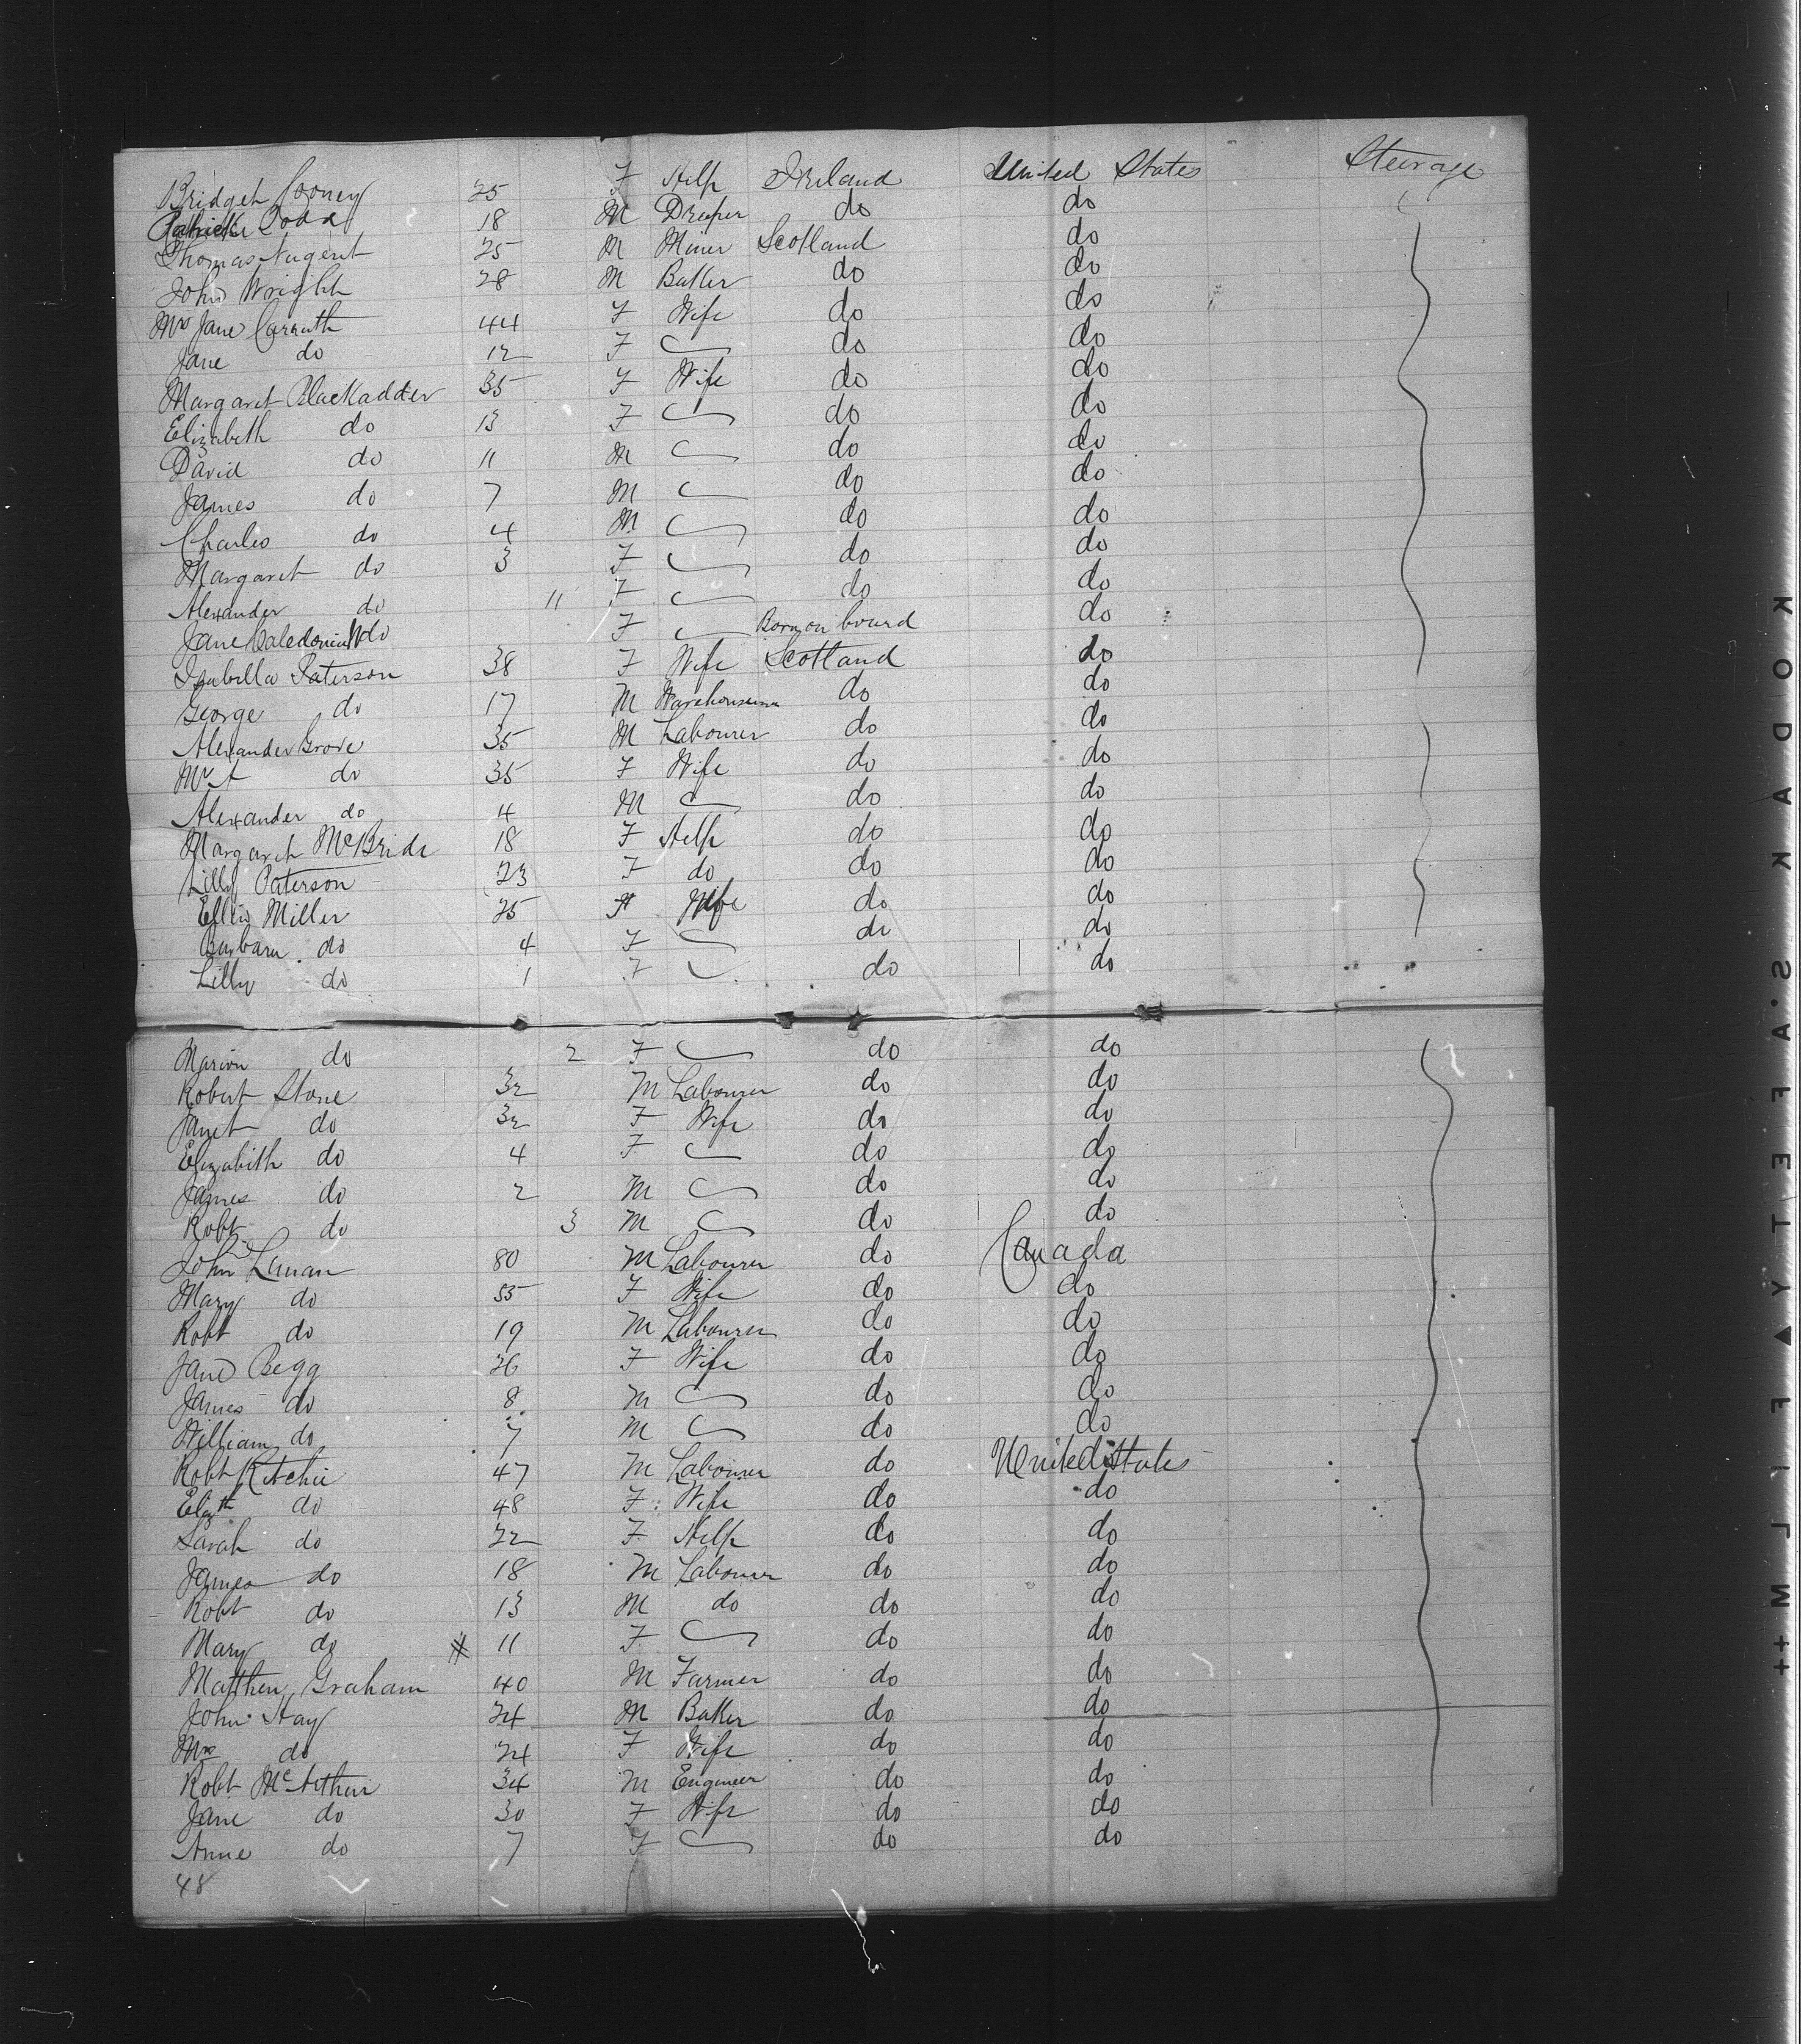 Bridget Cooney 25 F Help Ireland United States Steerage
Patrick Dodd 18 M Draper do do
Thomas Nugent 25 M Miner Scotland do
John Wright 28 M Baker do do
Mrs Jane Carruth 44 F Wife do do
Jane do 12 F do do
Margaret Blackadder 35 F Wife do do
Elizabeth do 13 F do do
David do 11 M do do
James do 7 M do do
Charles do 4 M do do
Margaret do 3 F do do
Alexander do 11 F do do
Jane Caledonia do F Born on board do
Isabella Paterson 38 F Wife Scotland do
George do 17 M Warehouseman do do
Alexander Grove 35 M Labourer do do
Mrs A do 35 F Wife do do
Alexander do 4 M do do
Margaret McBride 18 F Help do do
Lilly Paterson 23 F do do do
Ellen Miller 25 F Wife do do
Barbara do 4 F do do
Lilly do 1 F do do
Marion do 2 F do do
Robert Stone 32 M Labourer do do
Janet do 32 F Wife do do
Elizabeth do 4 F do do
James do 2 M do do
Robt do 3 M do do
John 80 M Labourer do Canada
Mary do 55 F Wife do do
Robt do 19 M Labourer do do
Jane Begg 26 F Wife do do
James do 8 M do do
William do 7 M do do
Robt Ritchie 47 M Labourer do United States
Elizth do 48 F Wife do do
Sarah do 22 F Help do do
James do 18 M Labourer do do
Robt do 13 M do do do
Mary do 11 F do do
Matthew Graham 40 M Farmer do do
John Hay 24 M Baker do do
Mrs do 24 F Wife do do
Robt McArthur 34 M Engineer do do
Jane do 30 F Wife do do
Anne do 7 F do do
48
KODAK'S SAFETY FILM ++